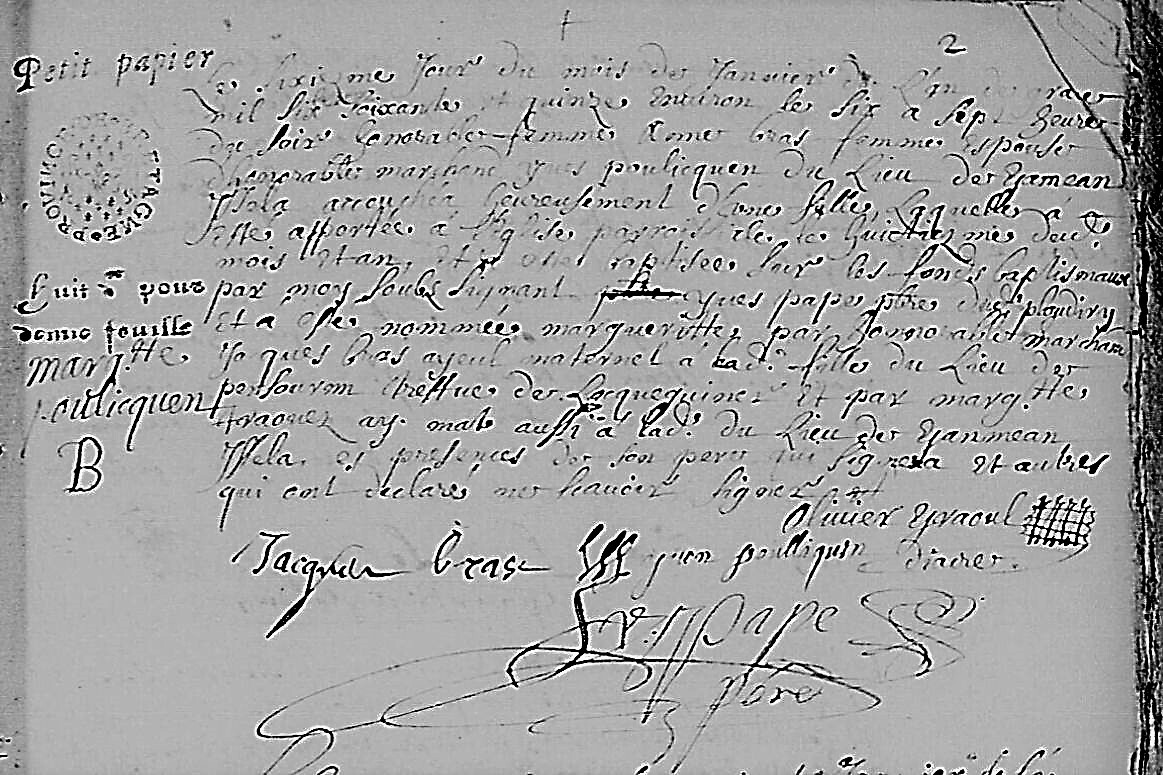 2
Petit papier
BRETAGNE PROVINC
Huit ds pour
demie feuille
marg.tte
poulicquen
B
Le sixiesme Jour du mois de Janvier de L'an de grace
mil six soixante et quinze environ les six a sept heures
du soir honorable femme Anne bras femme espouse
d'honorable marchand yves poulicquen du Lieu de
Issela accouchée heureusement d'une fille, Laquelle a
esté apportée a l'Eglise parroissiale le huictiesme deud.
mois et an, et a esté baptisée sur les fonds baptismaux
par moy soubs signant yves pape pbre de ploudiry
Et a esté nommée margueritte par honnorable marchand
Jacques bras ayeul maternel a lad. fille du Lieu de
treffve de Locquequiner Et par marg.tte
traouez ay. mat aussi a lad. du Lieu de
Issela, es presences de son pere qui signera et autres
qui ont declaré ne scavoir signer
Ollivier
Jacques bras yuen poulliquin diacre.
Yves pape
pbre